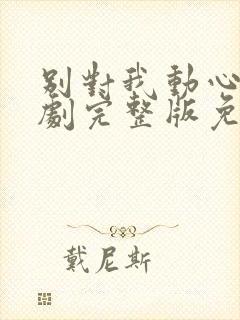 別對我動心
劇完整版免
戴尼斯